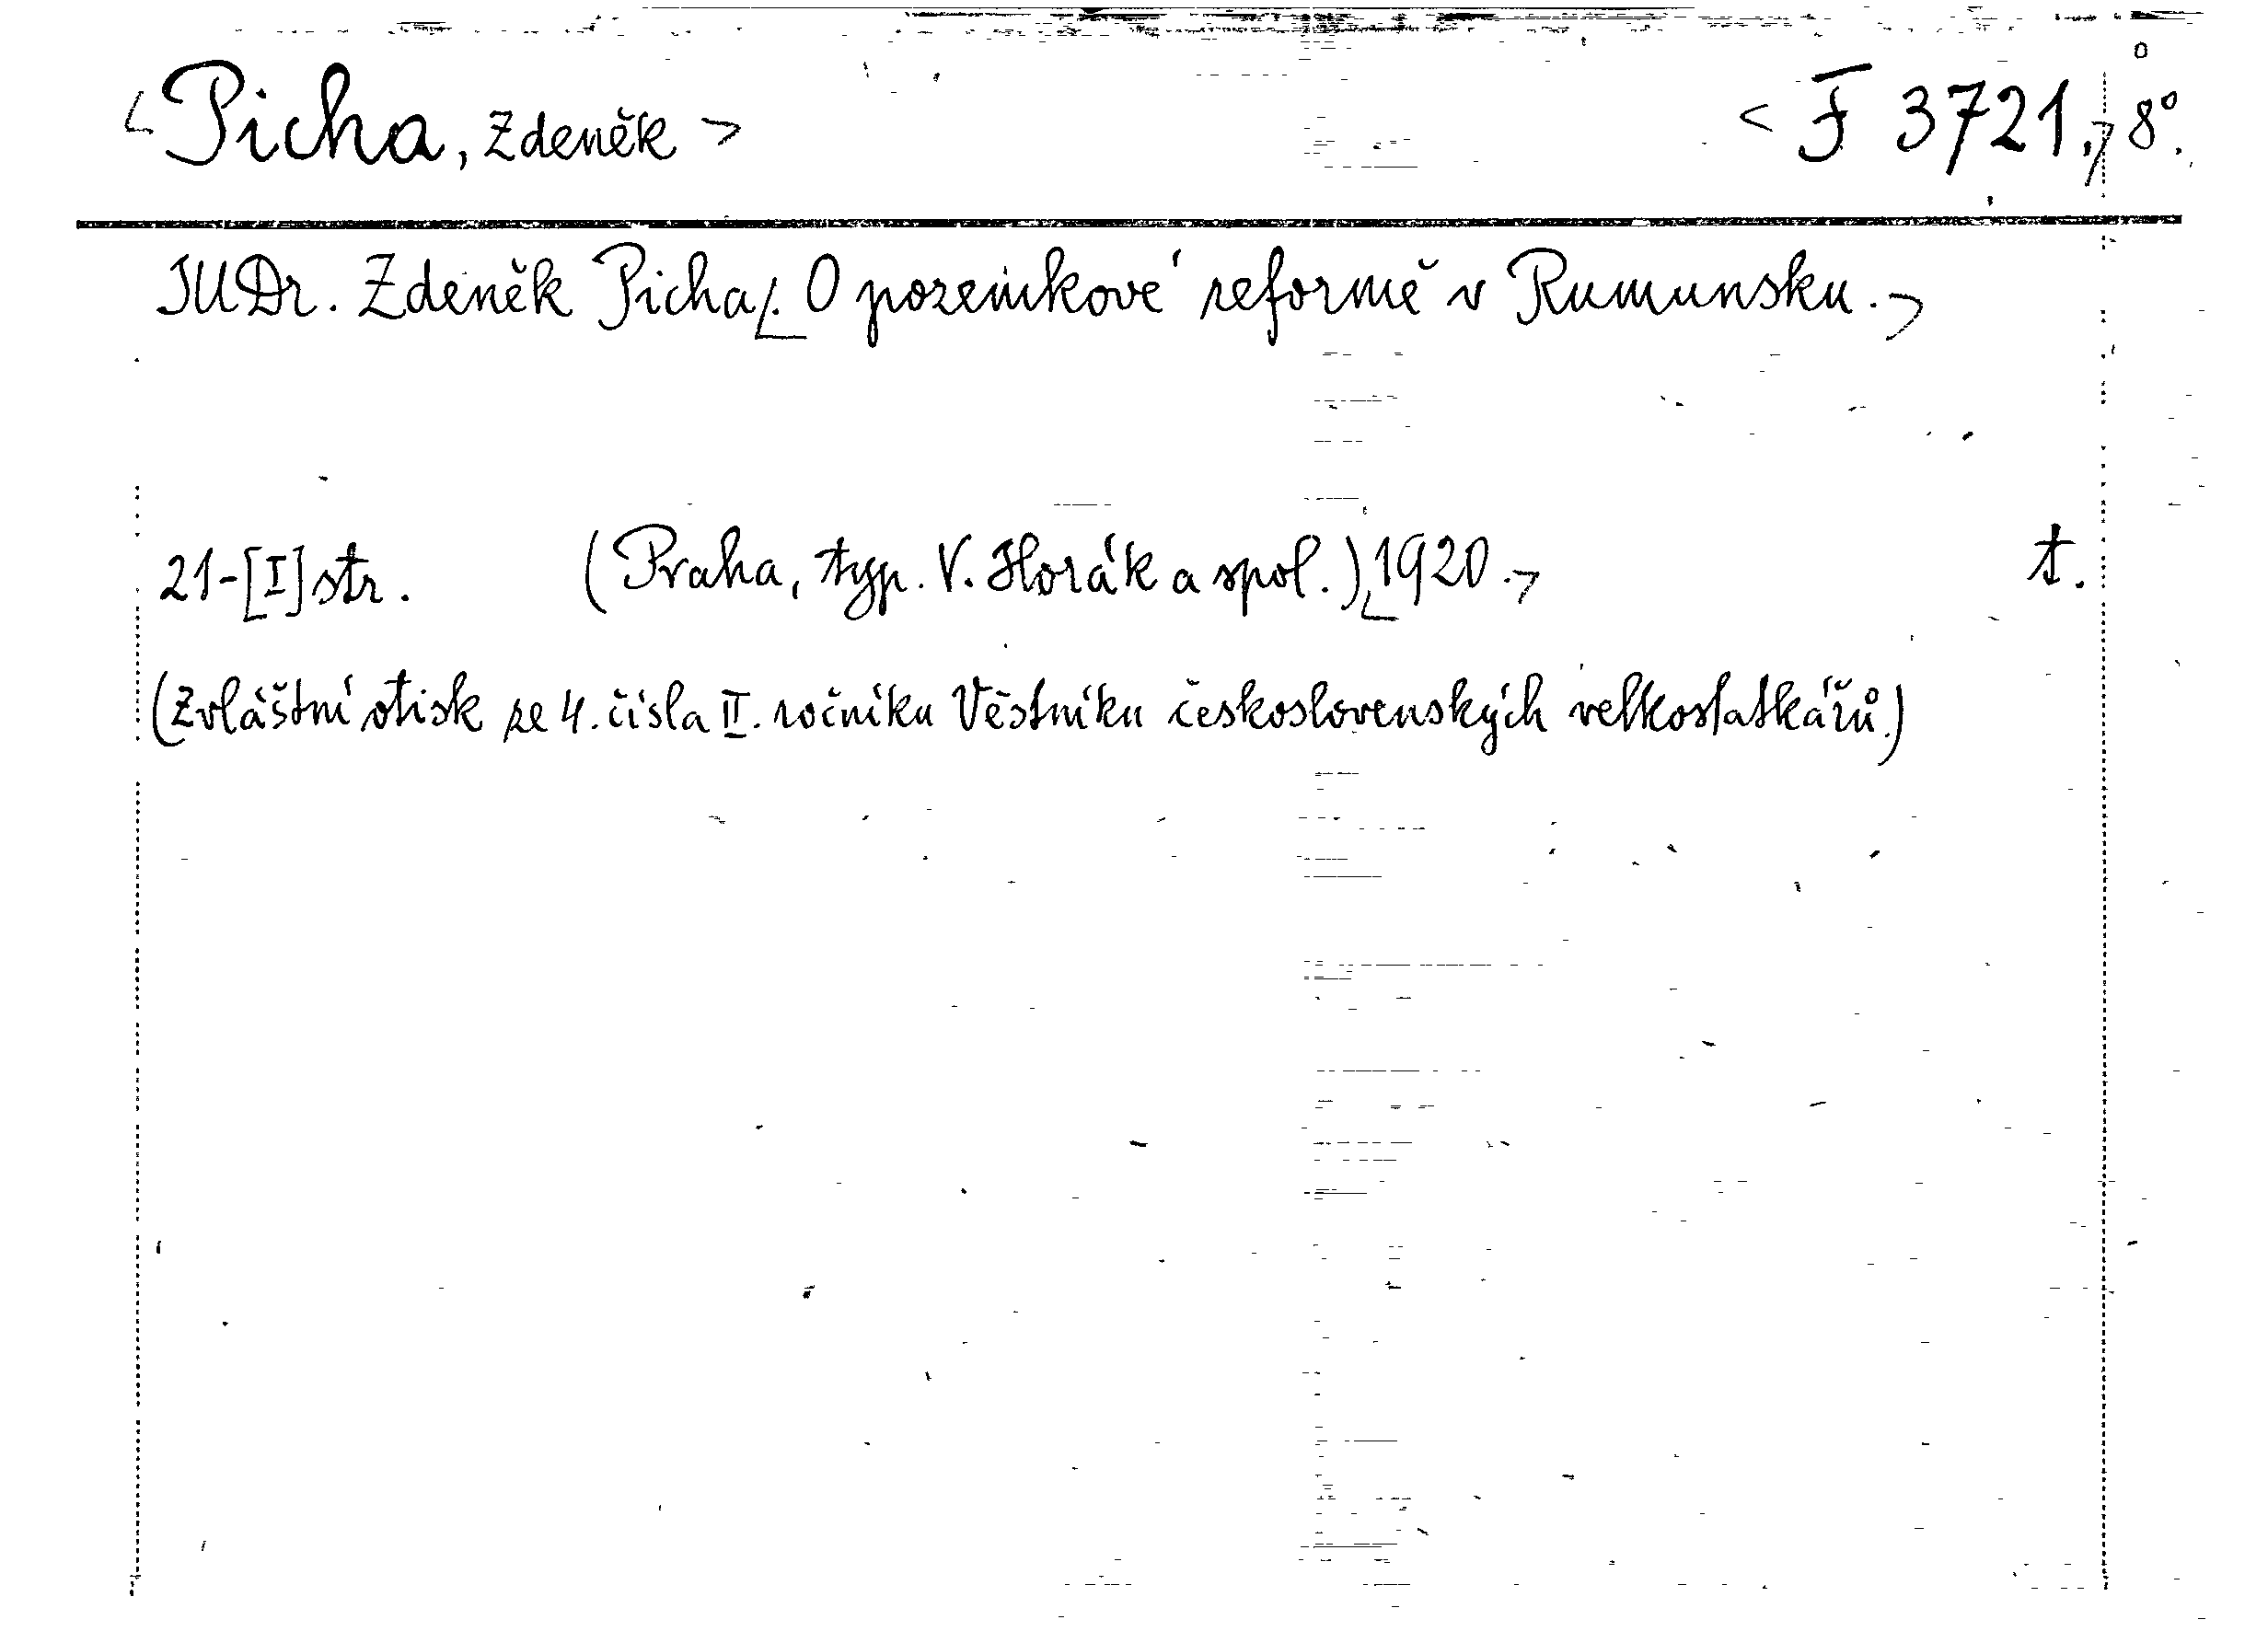 <Picha, Zdeněk> <F 3721.,> 8°.
JUDr. Zdeněk Picha<. O pozemkové reformě v Rumunsku.>
21-[I] str. (Praha, typ. V. Horák a spol.), <1920.> t.
(Zvláštní otisk ze 4. čísla II. ročníku Věstníku československých velkostatkářů.)